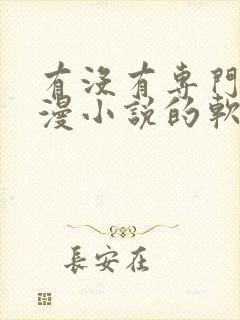 有沒有專門
漫小說的軟
長安在